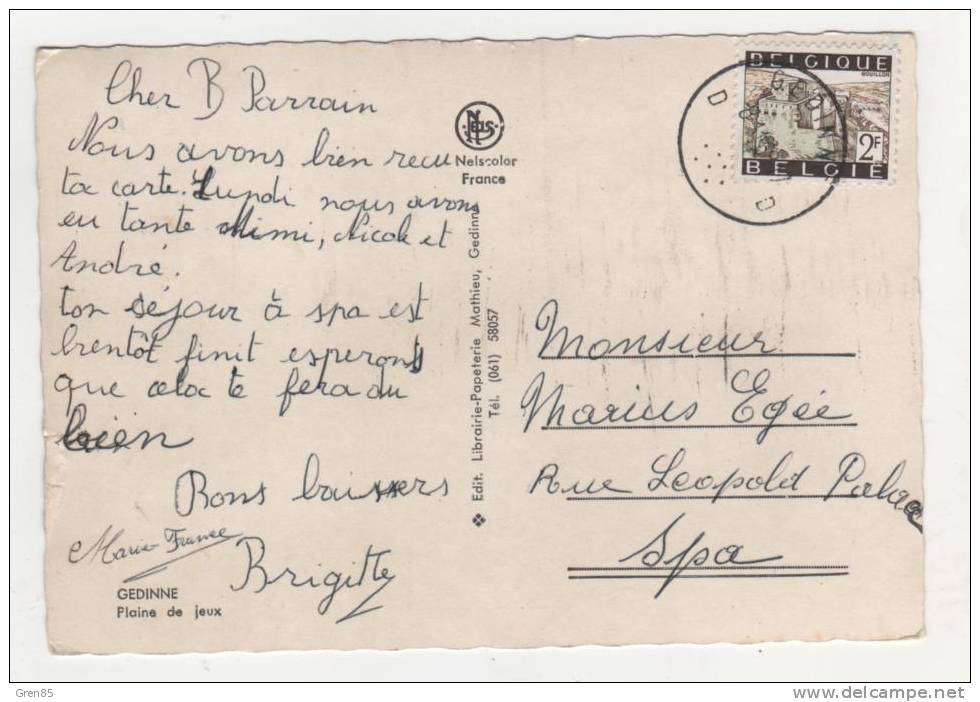 Cher B Parrain
Nous avons bien recu
ta carte. Lundi nous avons
eu tante Mimi, Nicole et
André.
ton séjour à spa est
bientôt finit esperons
que cela te fera du
bien
Bons baisers
Marie-France
Brigitte
GEDINNE
Plaine de jeux
NELS
Nelscolor
France
Edit. Librairie-Papeterie Mathieu, Gedinne
Tél. (061) 58057
BELGIQUE
BOUILLON
2F
BELGIE
Monsieur
Marius Egée
Rue Leopold Palace
Spa
Gren85
delcampe.net